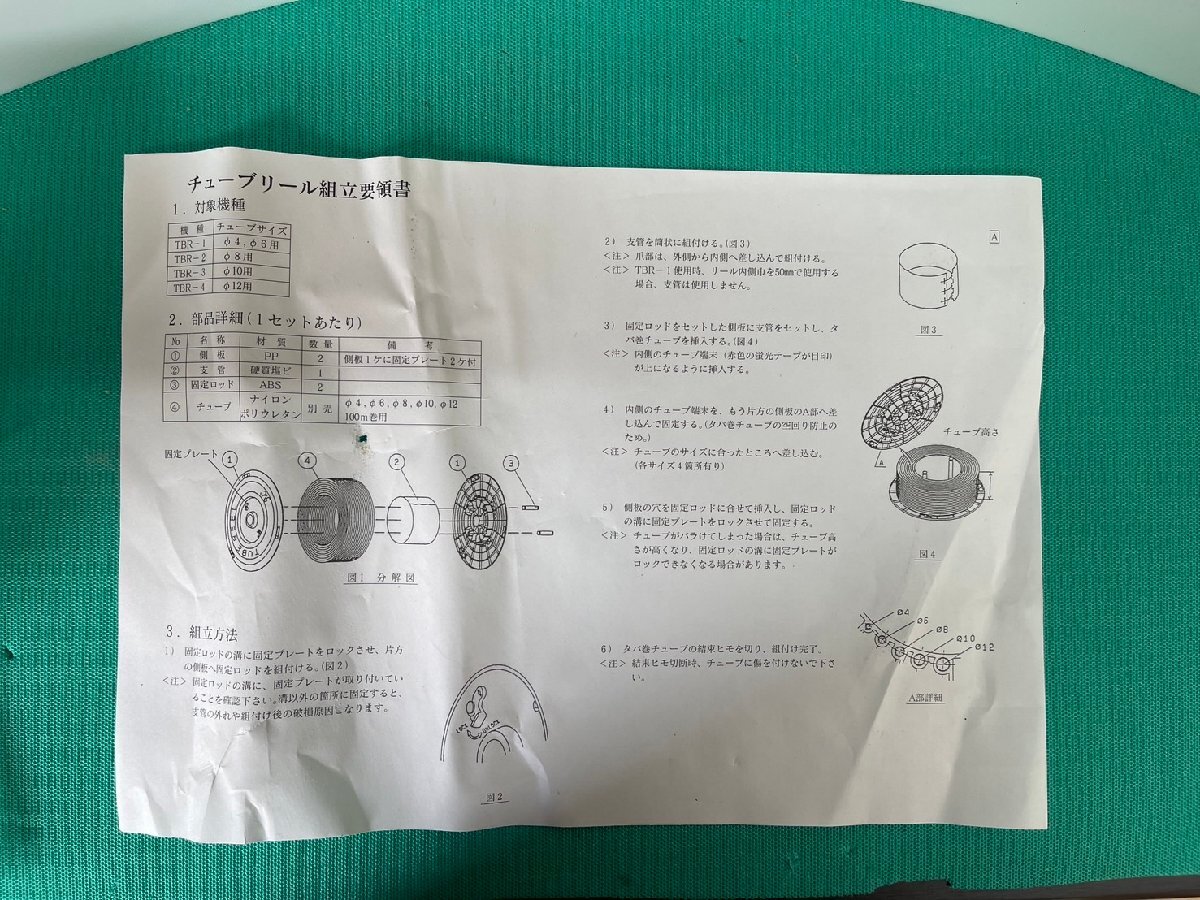 チューブリール組立要領書
1．対象機種
機種 チューブサイズ
TBR-1 φ4,φ6用
TBR-2 φ8用
TBR-3 φ10用
TBR-4 φ12用
2．部品詳細(1セットあたり)
No 名称 材質 数量 備考
① 側板 PP 2 側板1ケに固定プレート2ケ付
② 支管 硬質塩ビ 1
③ 固定ロッド ABS 2
④ チューブ ナイロン ポリウレタン 別売 φ4,φ6,φ8,φ10,φ12 100m巻用
固定プレート ① ④ ② ① ③
TUBE REEL
図1 分解図
3．組立方法
1) 固定ロッドの溝に固定プレートをロックさせ、片方
の側板へ固定ロッドを組付ける。(図2)
<注> 固定ロッドの溝に、固定プレートが取り付いてい
ることを確認下さい。溝以外の箇所に固定すると、
支管の外れや組付け後の破損原因となります。
図2
A
2) 支管を筒状に組付ける。(図3)
<注> 爪部は、外側から内側へ差し込んで組付ける。
<注> TBR-1使用時、リール内側巾を50mmで使用する
場合、支管は使用しません。
図3
3) 固定ロッドをセットした側板に支管をセットし、タ
バ巻チューブを挿入する。(図4)
<注> 内側のチューブ端末（赤色の蛍光テープが目印)
が上になるように挿入する。
4) 内側のチューブ端末を、もう片方の側板のA部へ差
し込んで固定する。(タバ巻チューブの空回り防止の
ため。)
<注> チューブのサイズに合ったところへ差し込む。
(各サイズ4箇所有り)
チューブ高さ
A
5) 側板の穴を固定ロッドに合せて挿入し、固定ロッド
の溝に固定プレートをロックさせて固定する。
<注> チューブがバラけてしまった場合は、チューブ高
さが高くなり、固定ロッドの溝に固定プレートが
ロックできなくなる場合があります。
図4
6) タバ巻チューブの結束ヒモを切り、組付け完了。
<注> 結束ヒモ切断時、チューブに傷を付けないで下さ
い。
ø4
ø6
ø8
ø10
ø12
A部詳細